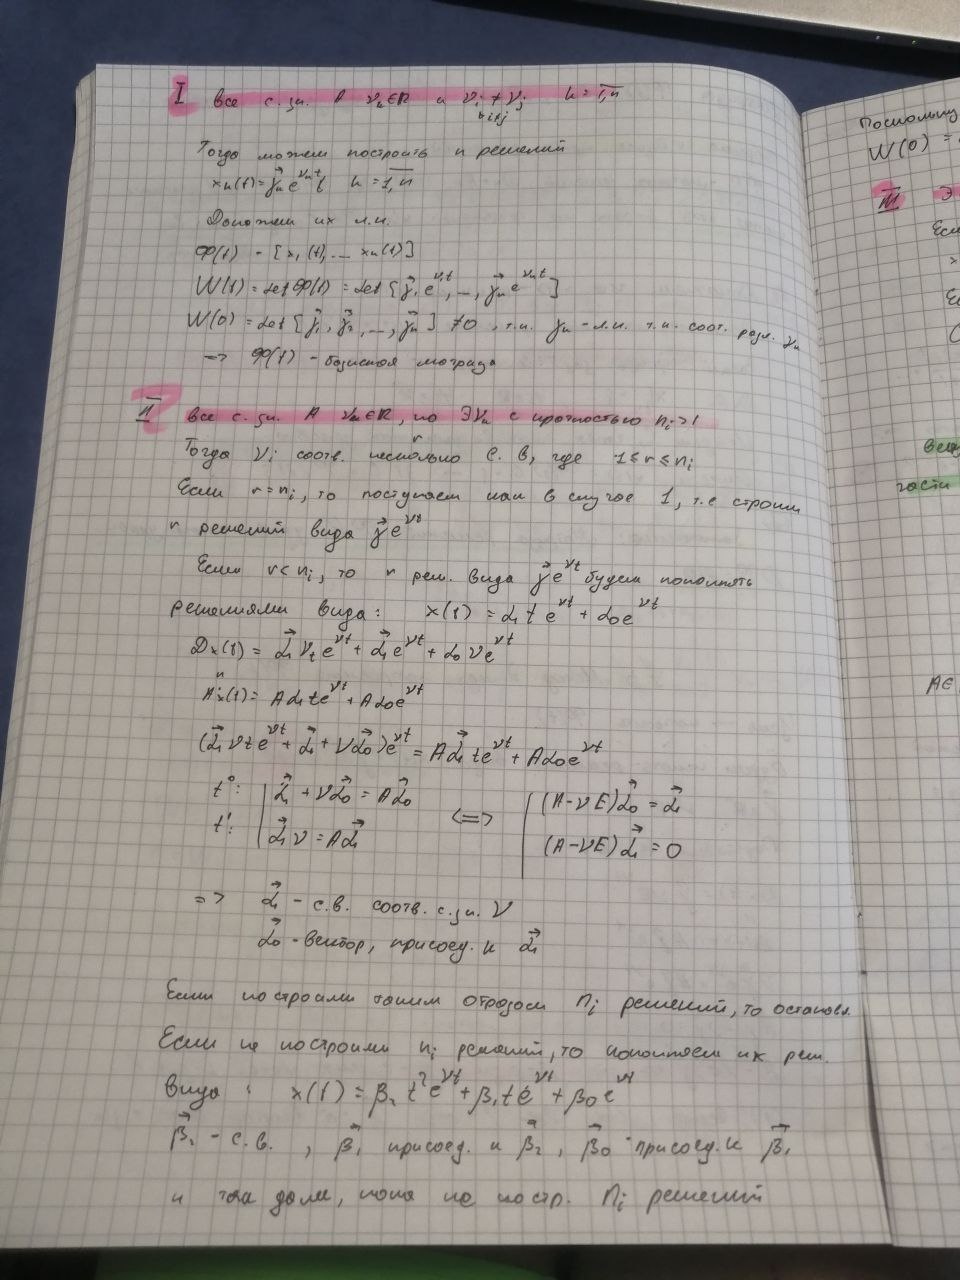 I все с.зн. A νₖ∈R и νᵢ ≠ νⱼ k = 1,n
и i≠j
Тогда можем построить n решений
xₖ(t) = γ⃗ₖ e^{νₖt} k = 1,n
Докажем их л.н.
Φ(t) = [x₁(t), ... xₙ(t)]
W(t) = det Φ(t) = det [γ⃗₁ e^{ν₁t}, ..., γ⃗ₙ e^{νₙt}]
W(0) = det [γ⃗₁, γ⃗₂, ..., γ⃗ₙ] ≠0, т.к. γₖ - л.н. т.к. соот. разл. νₖ
=> Φ(t) - базисная матрица
II все с.зн. A νₖ∈R, но ∃νₖ с кратностью nᵢ>1
Тогда νᵢ соотв. несколько r с.в, где 1≤r≤nᵢ
Если r=nᵢ, то поступаем как в случае 1, т.е строим
r решений вида γ⃗e^{νt}
Если r<nᵢ, то r реш. вида γ⃗e^{νt} будем пополнять
решениями вида: x(t) = α₁ t e^{νt} + α₀e^{νt}
Dx(t) = α⃗₁ νte^{νt} + α⃗₁e^{νt} + α₀ νe^{νt}
Ax(t) = Aα₁te^{νt} + Aα₀e^{νt}
(α⃗₁νte^{νt} + α⃗₁ + να⃗₀)e^{νt} = Aα⃗₁te^{νt} + Aα₀e^{νt}
t⁰: α⃗₁ + να⃗₀ = Aα⃗₀ <=> (A-νE)α⃗₀ = α⃗₁
t¹: α⃗₁ν = Aα⃗₁ (A-νE)α⃗₁ = 0
=> α⃗₁ - с.в. соотв. с.зн. ν
α⃗₀ - вектор, присоед. к α⃗₁
Если построили таким образом nᵢ решений, то останов.
Если не построили nᵢ решений, то пополняем их реш.
вида: x(t) = β₂ t²e^{νt} + β₁te^{νt} + β₀e^{νt}
β⃗₂ - с.в., β⃗₁ присоед. к β⃗₂, β⃗₀ присоед. к β⃗₁
и так дали, пока не постр. nᵢ решений
W(0) =
III Э
Есл
x
(
вещ
части
A∈